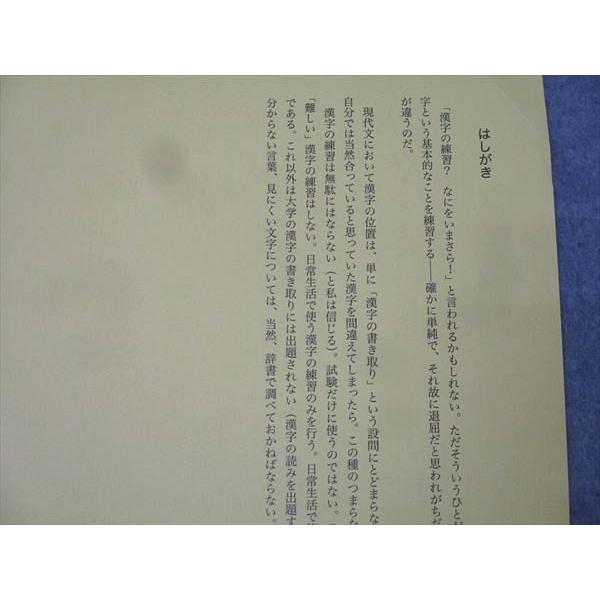 はしがき
「漢字の練習？　なにをいまさら！」と言われるかもしれない。ただそういうひとが
字という基本的なことを練習する――確かに単純で、それ故に退屈だと思われがちだ
が違うのだ。
現代文において漢字の位置は、単に「漢字の書き取り」という設問にとどまらな
自分では当然合っていると思っていた漢字を間違えてしまったら。この種のつまらな
漢字の練習は無駄にはならない（と私は信じる）。試験だけに使うのではない。
「難しい」漢字の練習はしない。日常生活で使う漢字の練習のみを行う。日常生活で
である。これ以外は大学の漢字の書き取りには出題されない（漢字の読みを出題す
分からない言葉、見にくい文字については、当然、辞書で調べておかねばならない。